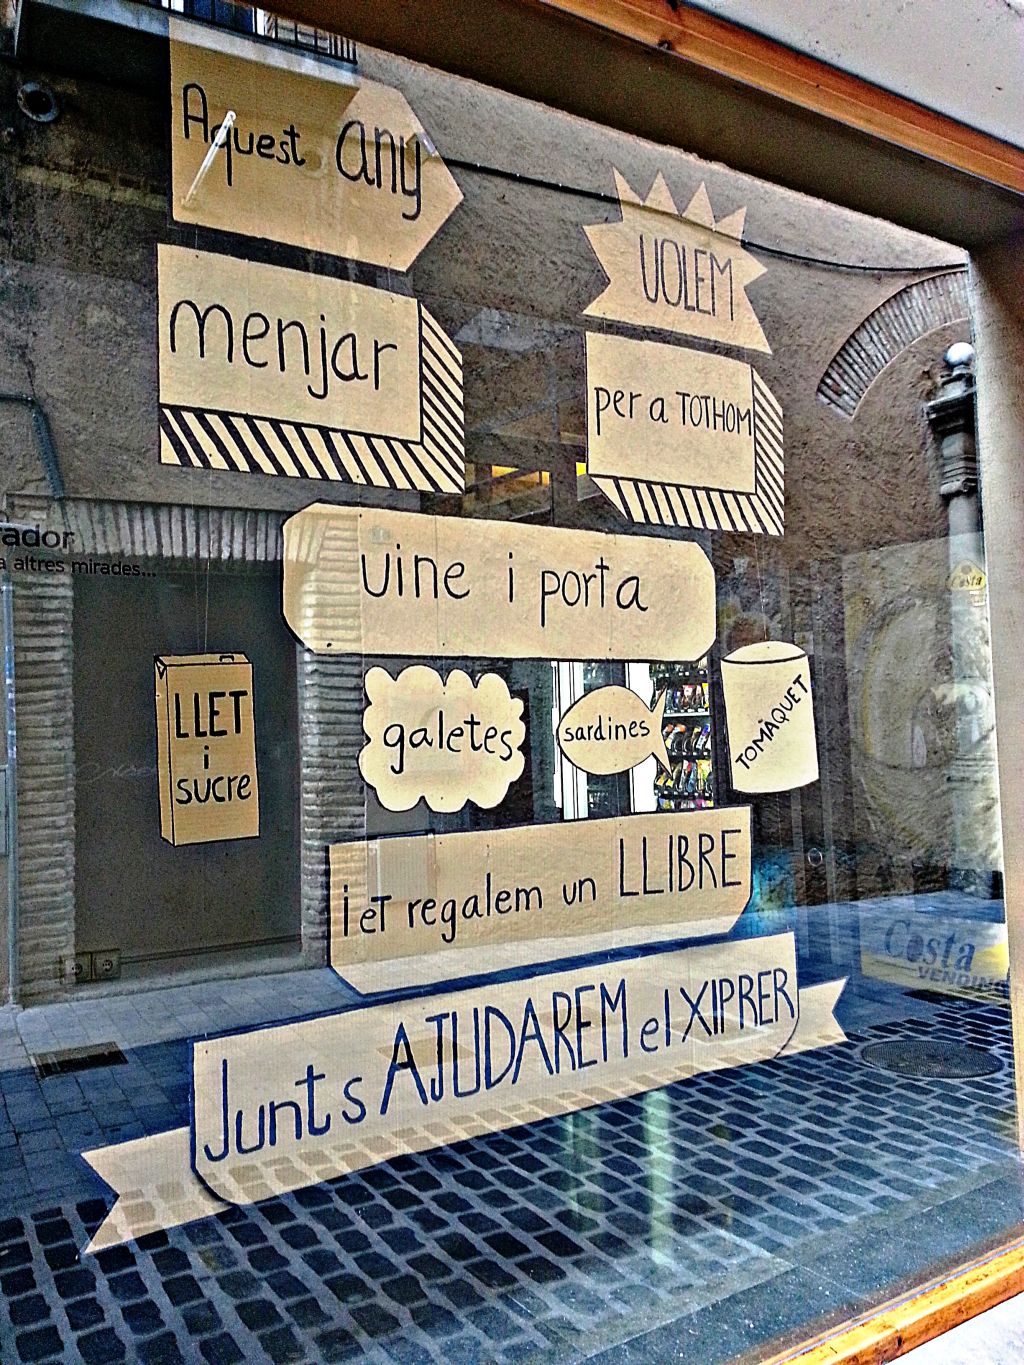 Aquest any
VOLEM
menjar
per a TOTHOM
vine i porta
ador
a altres mirades...
LLET
i
sucre
galetes
sardines
TOMÀQUET
i et regalem un LLIBRE
Junts AJUDAREM el XIPRER
Costa
Costa
VENDING